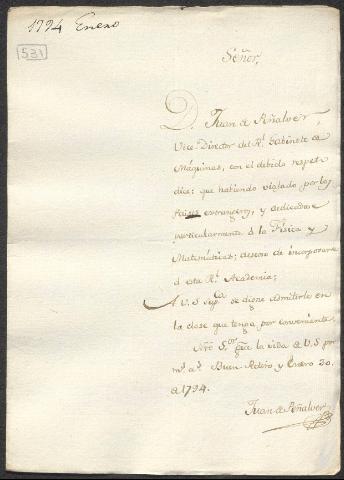 1794 Enero
531
Señor,
D. Juan de Peñalver,
Vice-Director del Rl. Gabinete de
Máquinas, con el debido respeto
dice: que habiendo viajado por los
Paises extrangeros, y dedicadose
particularmente á la Física y
Matemáticas; deseoso de incorporarse
á esta Rl. Academia;
A V.S. supca. se digne admitirle en
la clase que tenga por conveniente.
Ntrô Sor. gue. la vida a V.S por
ms. as. Buen Retiro y Enero 20.
de 1794.
Juan de Peñalver